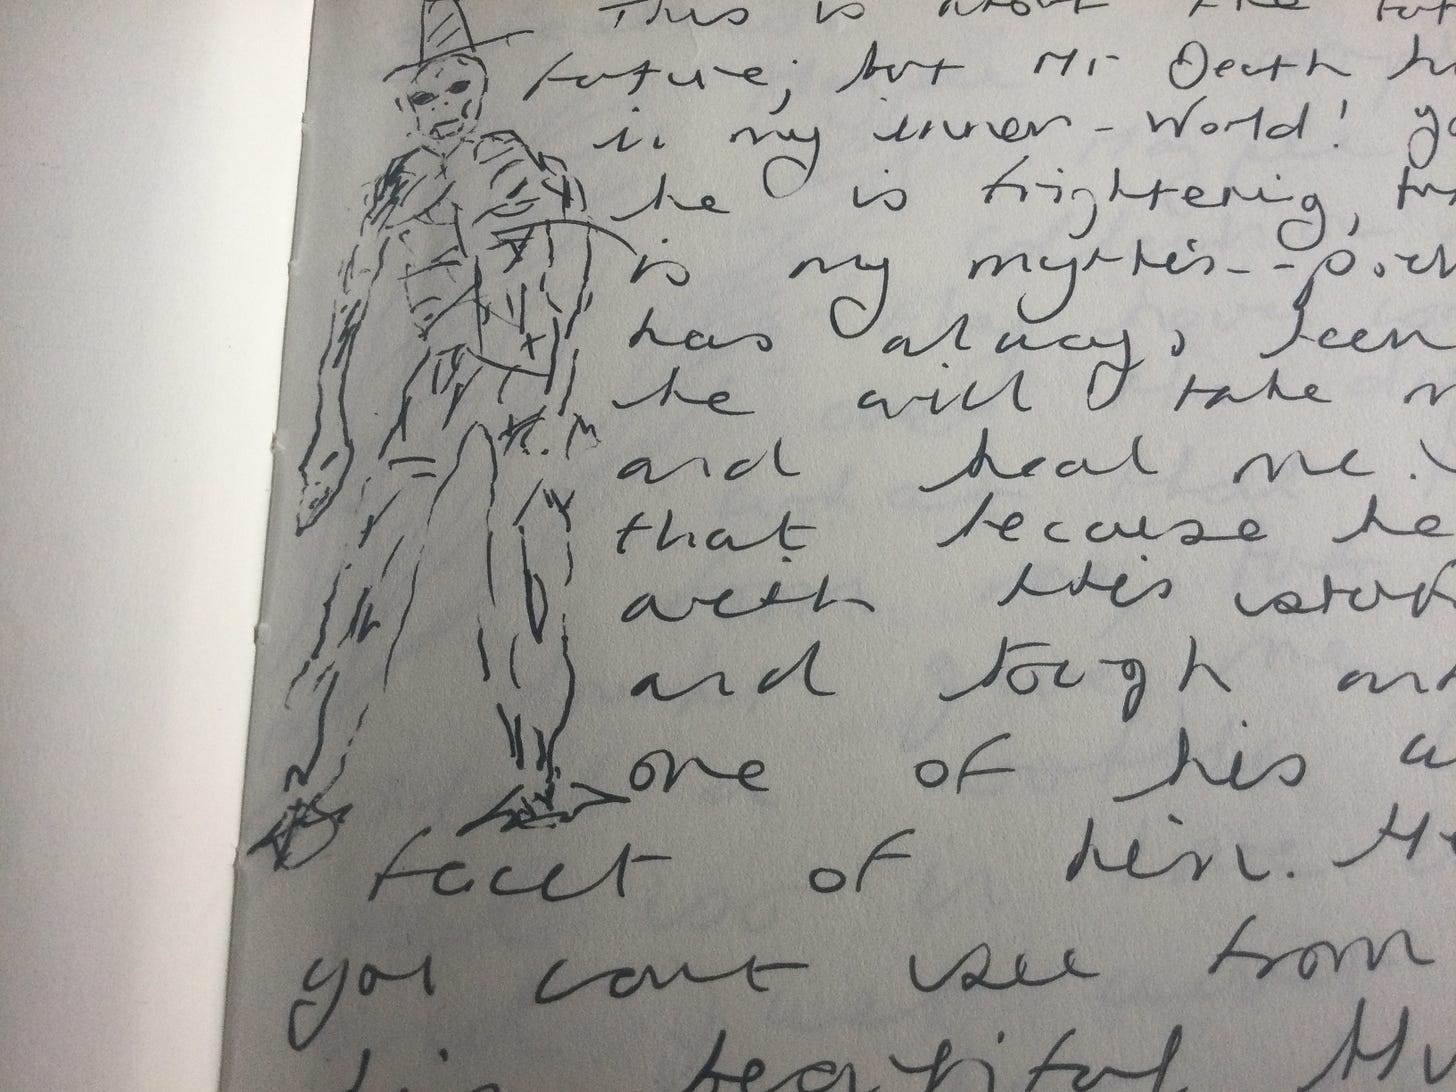 This is about the
future; but Mr Death
in my inner-World!
he is frightening,
is my
has always been
he will take
and heal me.
that because he
with this
and tough
one of his
facet of him.
you can't see from
his beautiful